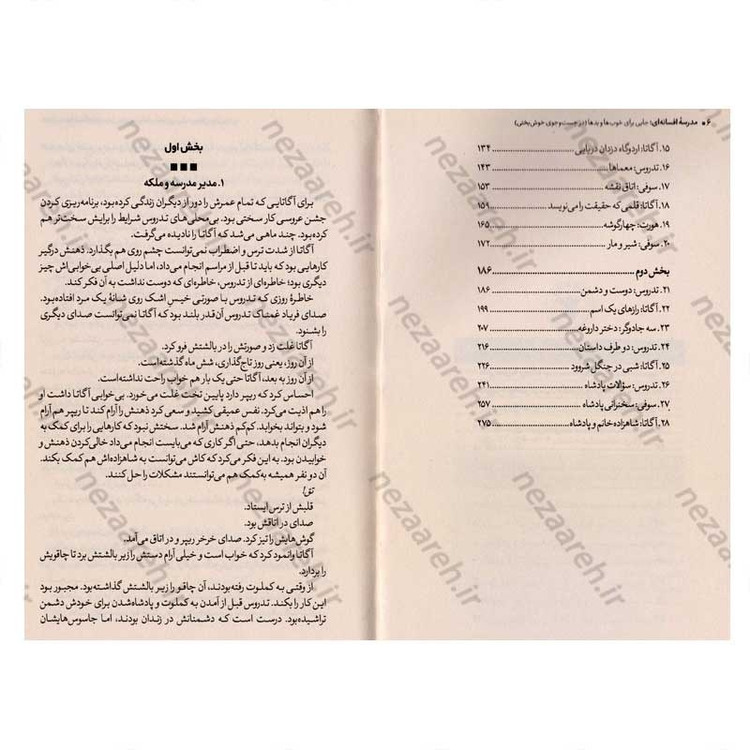 ۶ ■ مدرسهٔ افسانه‌ای: جایی برای خوب‌ها و بدها (در جست‌وجوی خوش‌بختی)
۱۵. آگاتا: اردوگاه دزدان دریایی ۱۳۴
۱۶. تدروس: معماها ۱۴۳
۱۷. سوفی: اتاق نقشه ۱۵۳
۱۸. آگاتا: قلمی که حقیقت را می‌نویسد ۱۵۹
۱۹. هورت: چهارگوشه ۱۶۵
۲۰. سوفی: شیر و مار ۱۷۲
بخش دوم ۱۸۶
۲۱. تدروس: دوست و دشمن ۱۸۶
۲۲. آگاتا: رازهای یک اسم ۱۹۹
۲۳. سه جادوگر: دختر داروغه ۲۰۷
۲۴. تدروس: دو طرف داستان ۲۱۶
۲۵. آگاتا: شبی در جنگل شروود ۲۲۶
۲۶. تدروس: سؤالات پادشاه ۲۴۱
۲۷. سوفی: سخنرانی پادشاه ۲۵۷
۲۸. آگاتا: شاهزاده خانم و پادشاه ۲۷۵
بخش اول
■ ■ ■
۱. مدیر مدرسه و ملکه
برای آگاتایی که تمام عمرش را دور از دیگران زندگی کرده بود، برنامه‌ریزی کردن
جشن عروسی کار سختی بود. بی‌محلی‌های تدروس شرایط را برایش سخت‌تر هم
کرده بود. چند ماهی می‌شد که آگاتا را نادیده می‌گرفت.
آگاتا از شدت ترس و اضطراب نمی‌توانست چشم روی هم بگذارد. ذهنش درگیر
کارهایی بود که باید تا قبل از مراسم انجام می‌داد، اما دلیل اصلی بی‌خوابی‌اش چیز
دیگری بود؛ خاطره‌ای از تدروس، خاطره‌ای که دوست نداشت به آن فکر کند.
خاطرهٔ روزی که تدروس با صورتی خیسِ اشک روی شانهٔ یک مرد افتاده بود.
صدای فریاد غمناک تدروس آن‌قدر بلند بود که آگاتا نمی‌توانست صدای دیگری
را بشنود.
آگاتا غلت زد و صورتش را در بالشتش فرو کرد.
از آن روز، یعنی روز تاج‌گذاری، شش ماه گذشته بود.
از آن روز به بعد، آگاتا حتی یک بار هم خواب راحت نداشته است.
احساس کرد که ریپر دارد پایین تخت غلت می‌خورد. بی‌خوابی آگاتا داشت او
را هم اذیت می‌کرد. نفس عمیقی کشید و سعی کرد ذهنش را آرام کند تا ریپر هم آرام
شود و بتواند بخوابد. کم‌کم ذهنش آرام شد. سختش نبود که کارهایی را برای کمک به
دیگران انجام بدهد، حتی اگر کاری که می‌بایست انجام می‌داد خالی‌کردن ذهنش و
خوابیدن بود. به این فکر می‌کرد که کاش می‌توانست به شاهزاده‌اش هم کمک بکند.
آن دو نفر همیشه به‌کمک هم می‌توانستند مشکلات را حل کنند.
تق!
قلبش از ترس ایستاد.
صدای در اتاقش بود.
گوش‌هایش را تیز کرد. صدای خرخر ریپر و در اتاق می‌آمد.
آگاتا وانمود کرد که خواب است و خیلی آرام دستش را زیر بالشتش برد تا چاقویش
را بردارد.
از وقتی به کملوت رفته بودند، آن چاقو را زیر بالشتش گذاشته بود. مجبور بود
این کار را بکند. تدروس قبل از آمدن به کملوت و پادشاه‌شدن برای خودش دشمن
تراشیده بود. درست است که دشمنانش در زندان بودند، اما جاسوس‌هایشان
nezaareh.ir